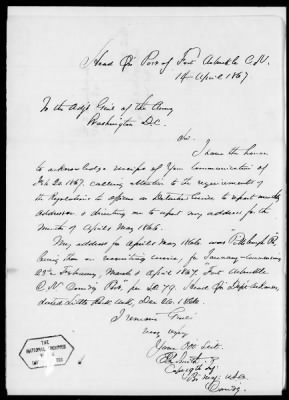 Head Qrs Post of Fort Arbuckle C.N.
14 April 1867
To the Adjt Genl of the Army
Washington D.C.
Sir.
I have the honor
to acknowledge receipt of your communication of
Feb 20 1867. calling attention to the requirements of
the Regulations to officers on Detached Service to report monthly
address & directing me to report my address for the
Month of April & May 1866.
My address for April & May 1866 was Pittsburgh Pa
being then on recruiting service, for January
23rd February, March & April 1867 Fort Arbuckle
C.N. Comdg Post, per S.O. 79. Head Qrs Dept Arkansas,
dated Little Rock Ark, Dec 26. 1866.
I remain Genl
Very Respy
Your Obt Servt
Capt 19th Inf
Bt Maj. USA
Comdg.
THE
NATIONAL ARCHIVES